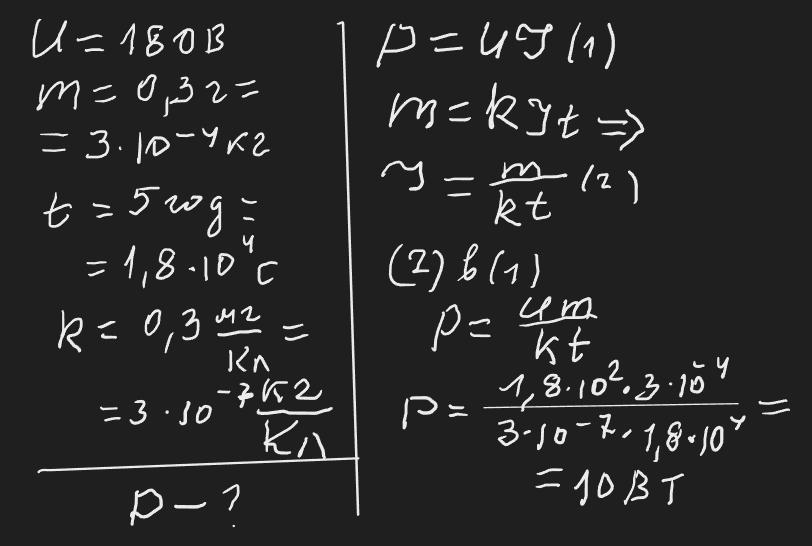 U = 180В
m = 0,3г =
= 3·10⁻⁴кг
t = 5 год =
= 1,8·10⁴с
k = 0,3 мг/Кл =
= 3·10⁻⁷ кг/Кл
P – ?
P = UI (1)
m = kIt ⇒
I = m/kt (2)
(2) в (1)
P = Um/kt
P = 1,8·10²·3·10⁻⁴/3·10⁻⁷·1,8·10⁴ =
= 10 Вт